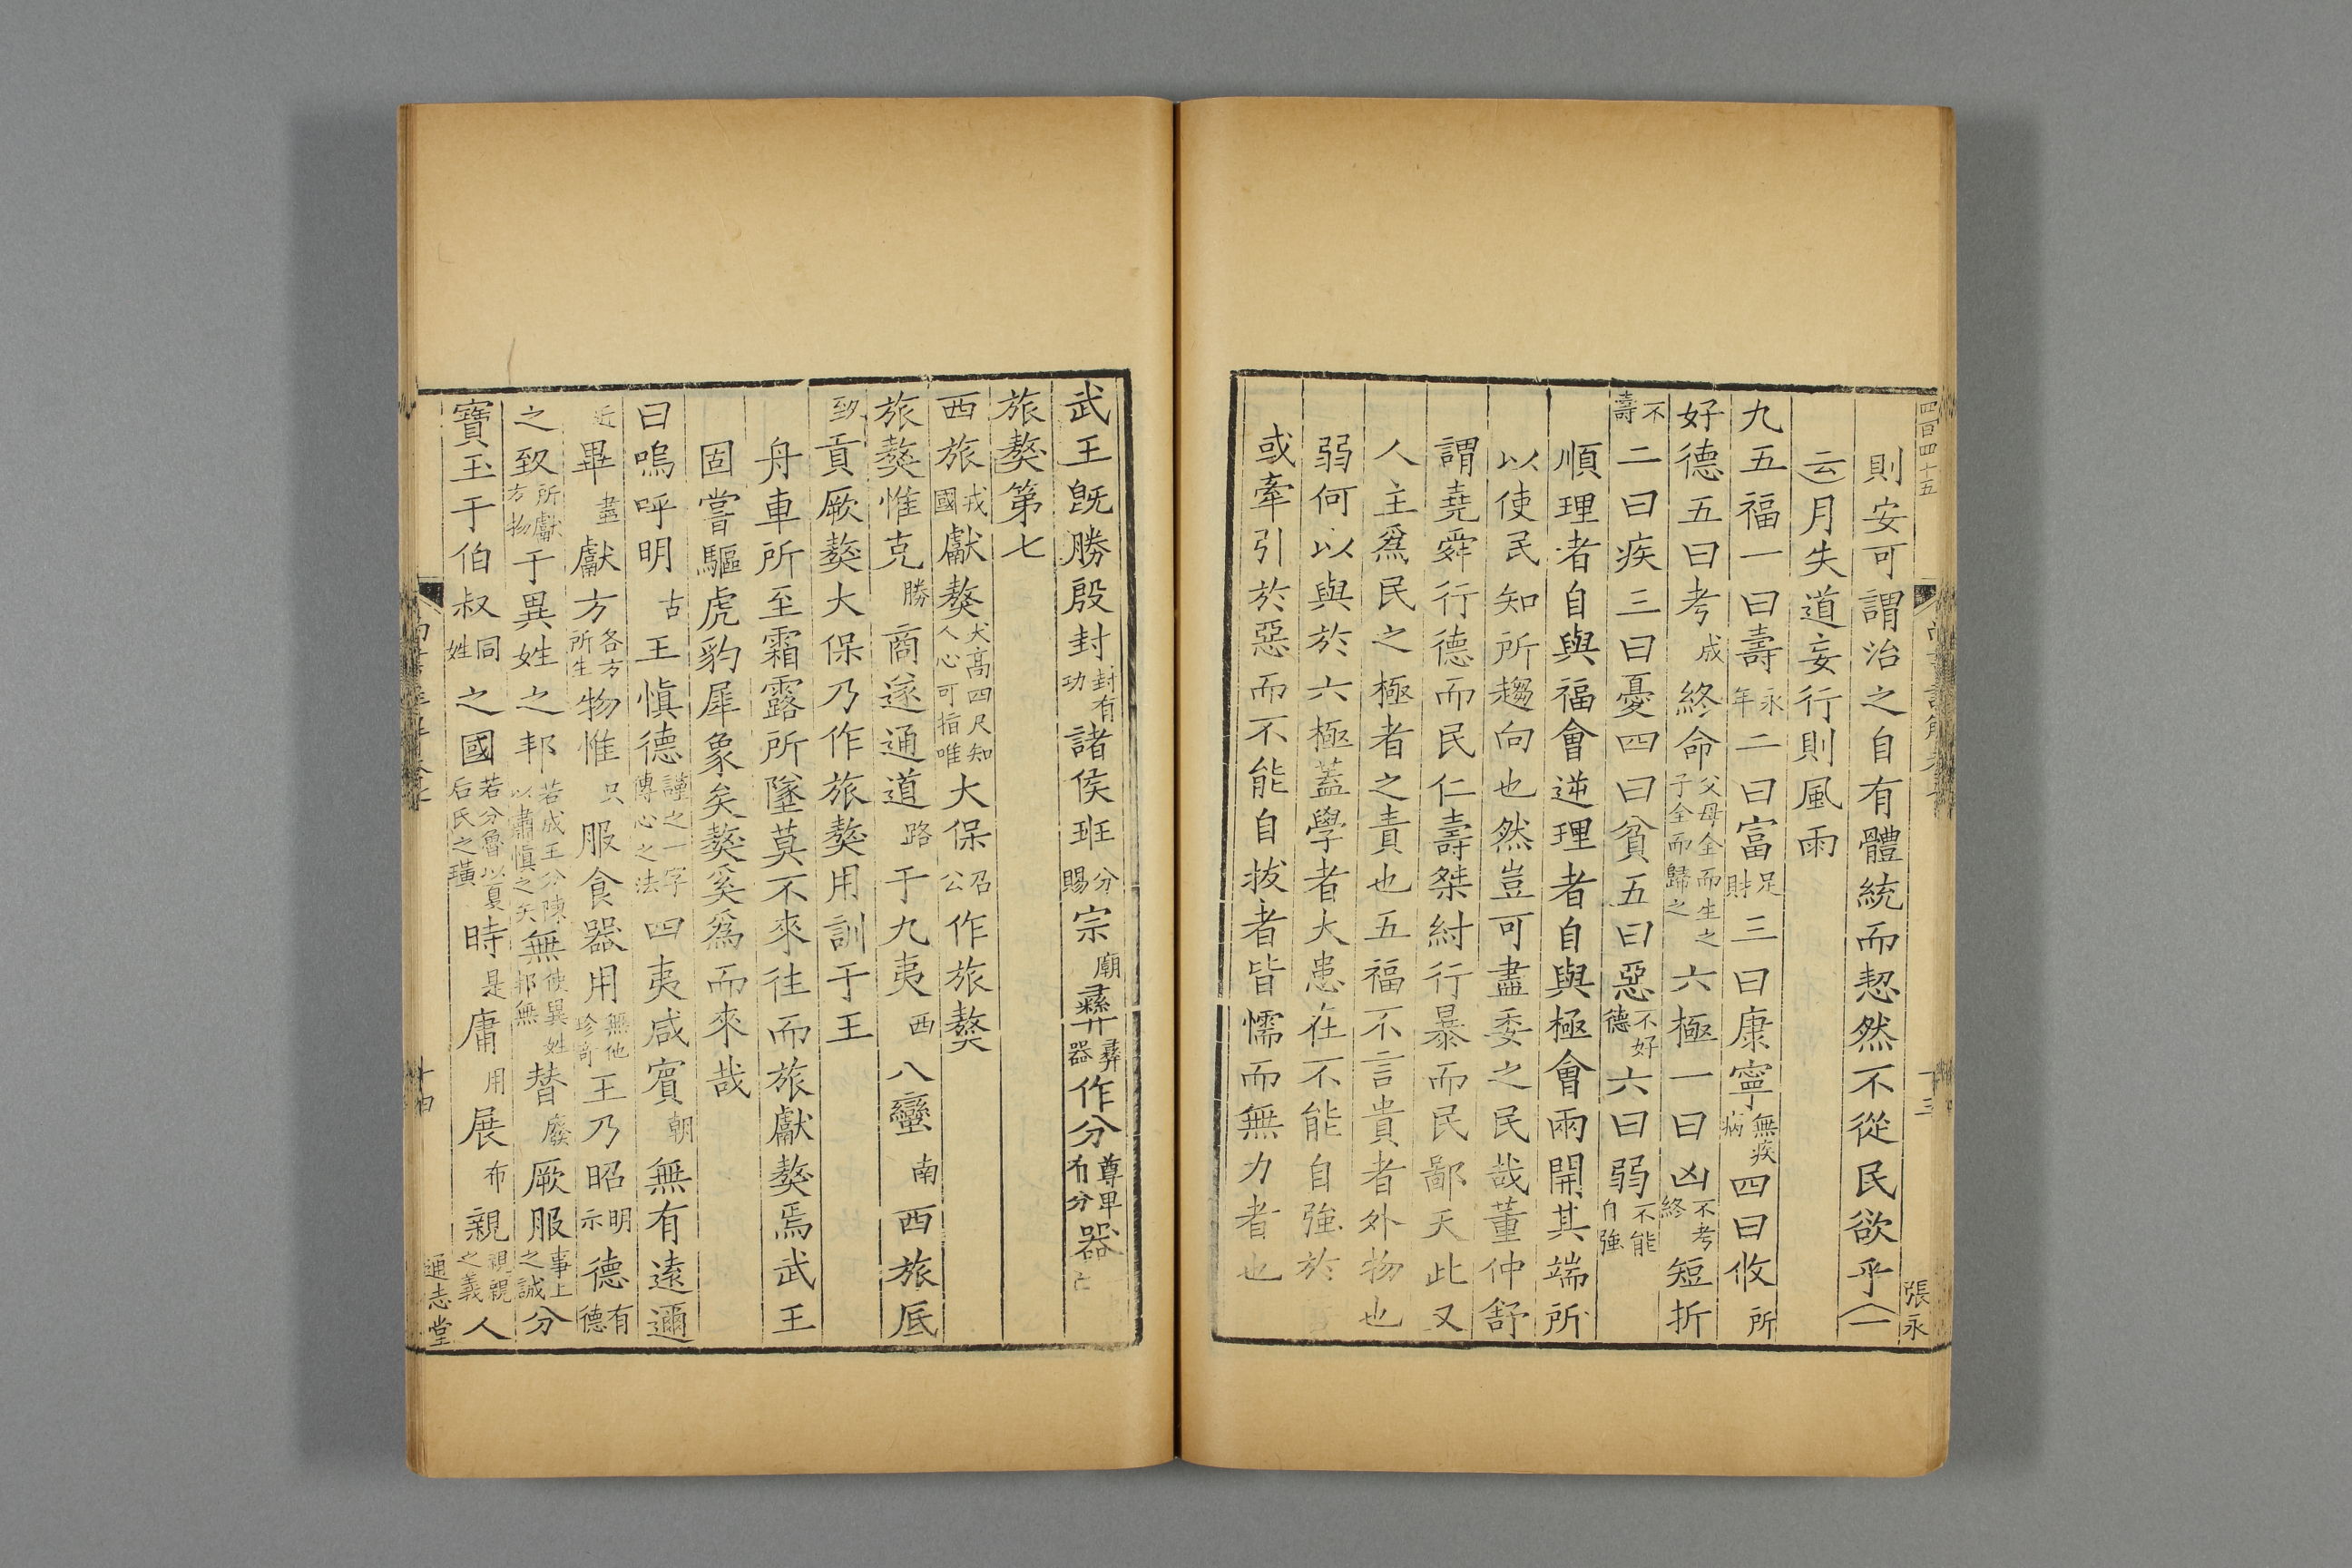 四百四十五
張永
十三
則安可謂治之自有體統而恝然不從民欲乎一
云月失道妄行則風雨
九五福一曰壽永年二曰富足財三曰康寧無疾病四曰攸所
好德五曰考成終命父母全而生之子全而歸之六極一曰凶不考終短折
不壽二曰疾三曰憂四曰貧五曰惡不好德六曰弱不能自強
順理者自與福會逆理者自與極會兩開其端所
以使民知所趨向也然豈可盡委之民哉董仲舒
謂堯舜行德而民仁壽桀紂行暴而民鄙夭此又
人主爲民之極者之責也五福不言貴者外物也
弱何以與於六極蓋學者大患在不能自強於
或牽引於惡而不能自拔者皆懦而無力者也
武王旣勝殷封封有功諸侯班分賜宗廟彝彝器作分尊卑布分器亡
旅獒第七
西旅戎國獻獒犬高四尺知人心可指唯大保召公作旅獒
旅獒惟克勝商遂通道路于九夷西八蠻南西旅厎
致貢厥獒大保乃作旅獒用訓于王
舟車所至霜露所墜莫不來往而旅獻獒焉武王
固嘗驅虎豹犀象矣獒奚爲而來哉
曰嗚呼明古王慎德謹之一字傳心之法四夷咸賓朝無有遠邇
近畢盡獻方各方所生物惟只服食器用無他珍奇王乃昭明示德有德
之致所獻方物于異姓之邦若成王分陳以肅慎之矢無使異姓邦無替廢厥服事上之誠分
寶玉于伯叔同姓之國若分魯以夏后氏之璜時是庸用展布親親之義人
十四
通志堂